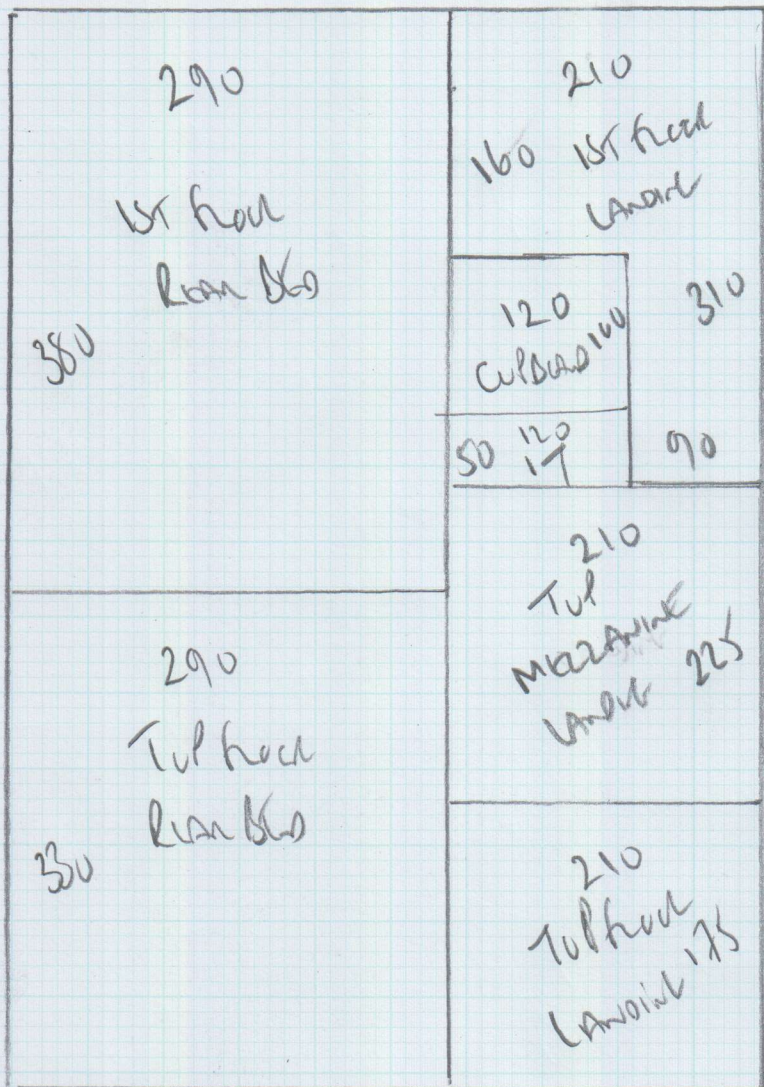 290
1ST FLOOR
REAR BED
380
210
160 1ST FLOOR
LANDING
310
120
CUPBOARD 100
50 120
1T
90
210
TOP
MEZZANINE
LANDING 225
290
TOP FLOOR
REAR BED
330
210
TOP FLOOR
LANDING 175